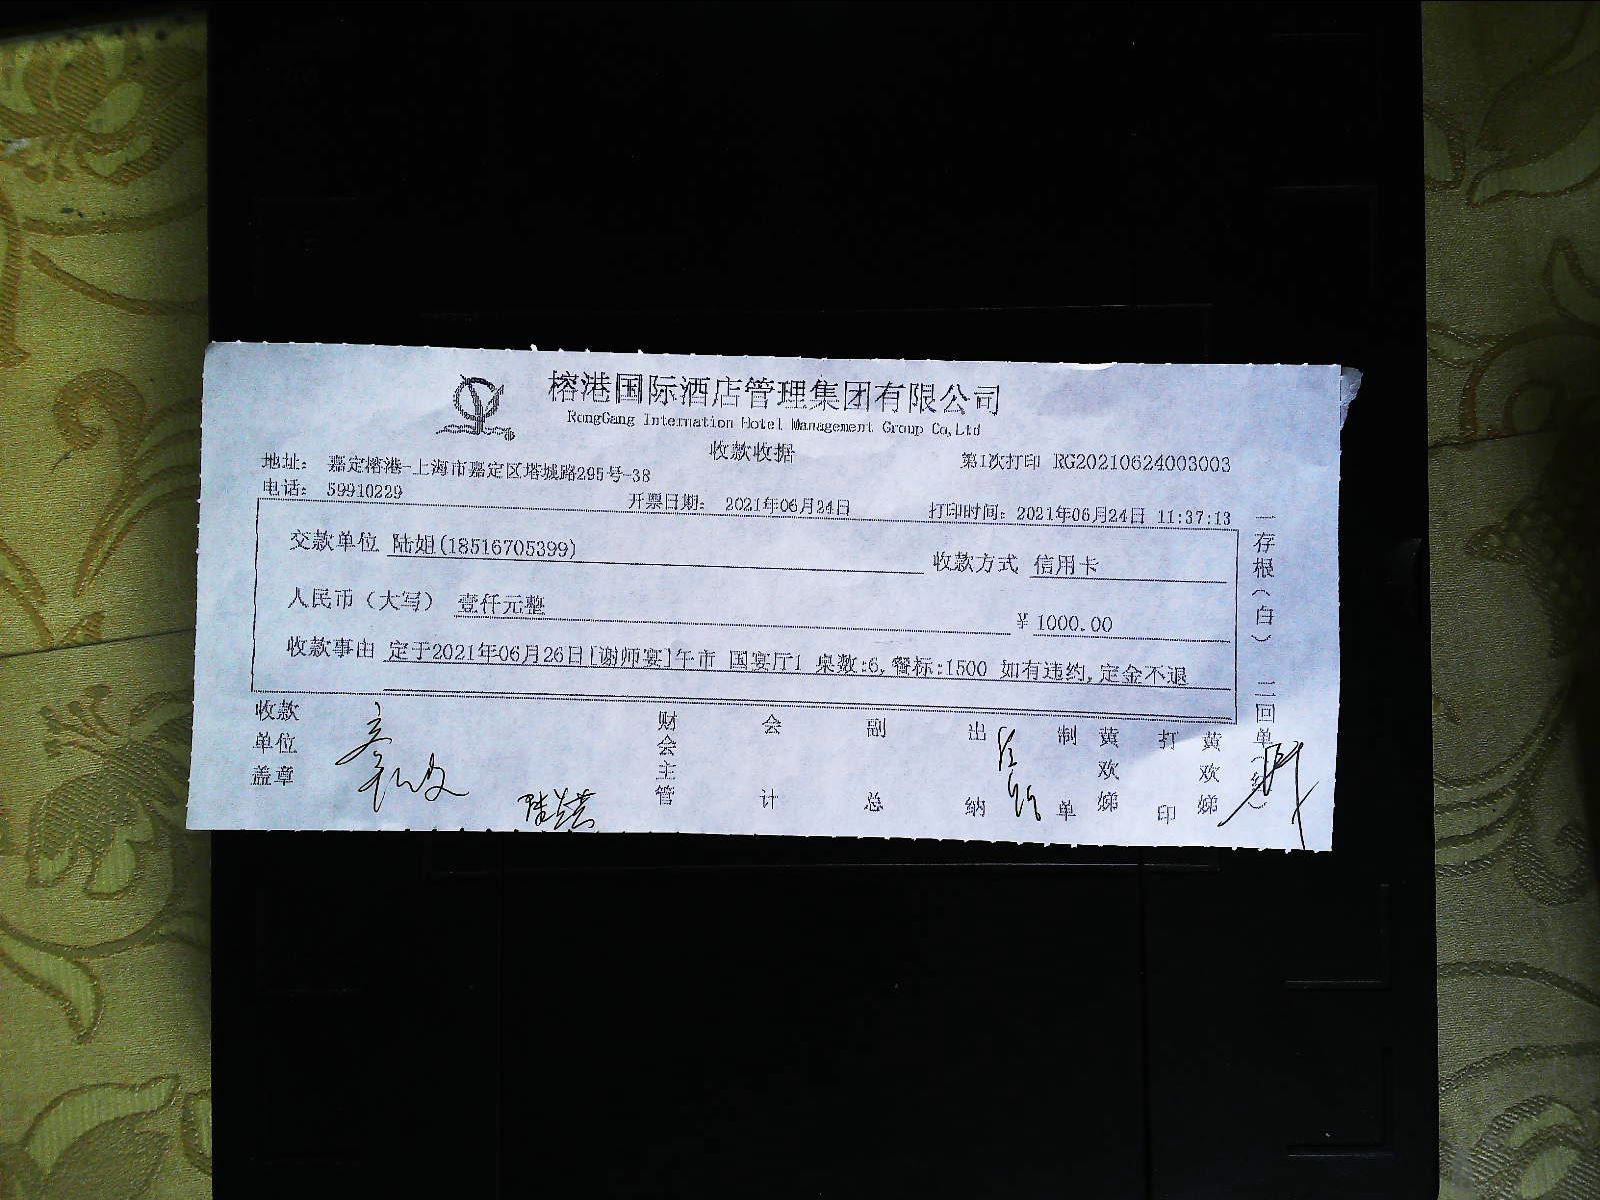 榕港国际酒店管理集团有限公司
RongGang Internation Hotel Management Group Co,Ltd
收款收据
地址： 嘉定榕港-上海市嘉定区塔城路295号-38
第1次打印 RG20210624003003
电话： 59910229
开票日期： 2021年06月24日
打印时间：2021年06月24日 11:37:13
交款单位 陆姐(18516705399)
收款方式 信用卡
人民币（大写） 壹仟元整
￥1000.00
收款事由 定于2021年06月26日[谢师宴]午市 国宴厅1 桌数:6,餐标:1500 如有违约,定金不退
一存根（白） 二回单（红）
收款单位盖章
财会主管
会计
副总
出纳
制单 黄欢娣
打印 黄欢娣